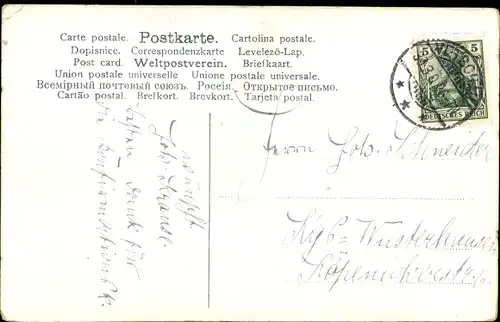 Carte postale. Postkarte. Cartolina postale.
Dopisnice. Correspondenzkarte Levelező-Lap.
Post card. Weltpostverein. Briefkaart.
Union postale universelle Unione postale universale.
Всемірный почтовый союзъ. Россія. Открытое письмо.
Cartão postal. Brefkort. Brevkort. Tarjeta postal.
5 5
DEUTSCHES REICH
Herrn Joh. Schneider
Kgs= Wusterhausen
Köpenickerstr.
wünscht
Joh. Krause.
besten Dank für
die Konfirmations